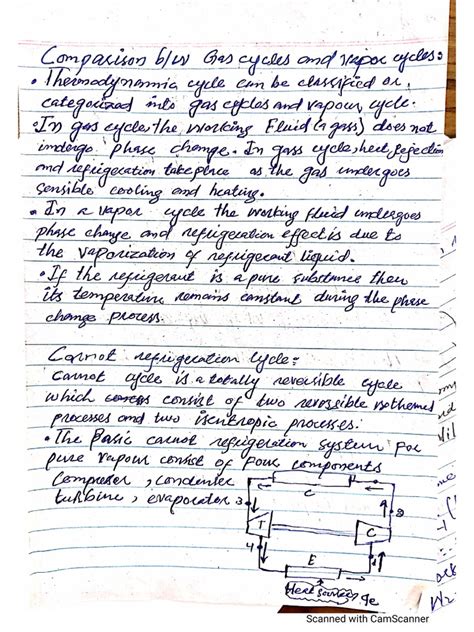 Comparison b/w Gas cycles and vapor cycles:
• Thermodynamic cycle can be classified or
categorized into gas cycles and vapour cycle.
• In gas cycle, the working Fluid (a gass) does not
undergo phase change. In gass cycle, heat rejection
and refrigeration take place as the gas undergoes
sensible cooling and heating.
• In a vapor cycle the working fluid undergoes
phase change and refrigeration effect is due to
the vaporization of refrigerant liquid.
• If the refrigerant is a pure substance then
its temperature remains constant during the phase
change process.
Carnot refrigeration cycle:
Carnot cycle is a totally reversible cycle
which consist of two reversible isothermal
processes and two isentropic processes.
• The Basic carnot refrigeration system for
pure vapour consist of four components
Compresser, condenser
turbine, evaporator
C
3
2
T
C
4
1
E
Heat source qe
Scanned with CamScanner